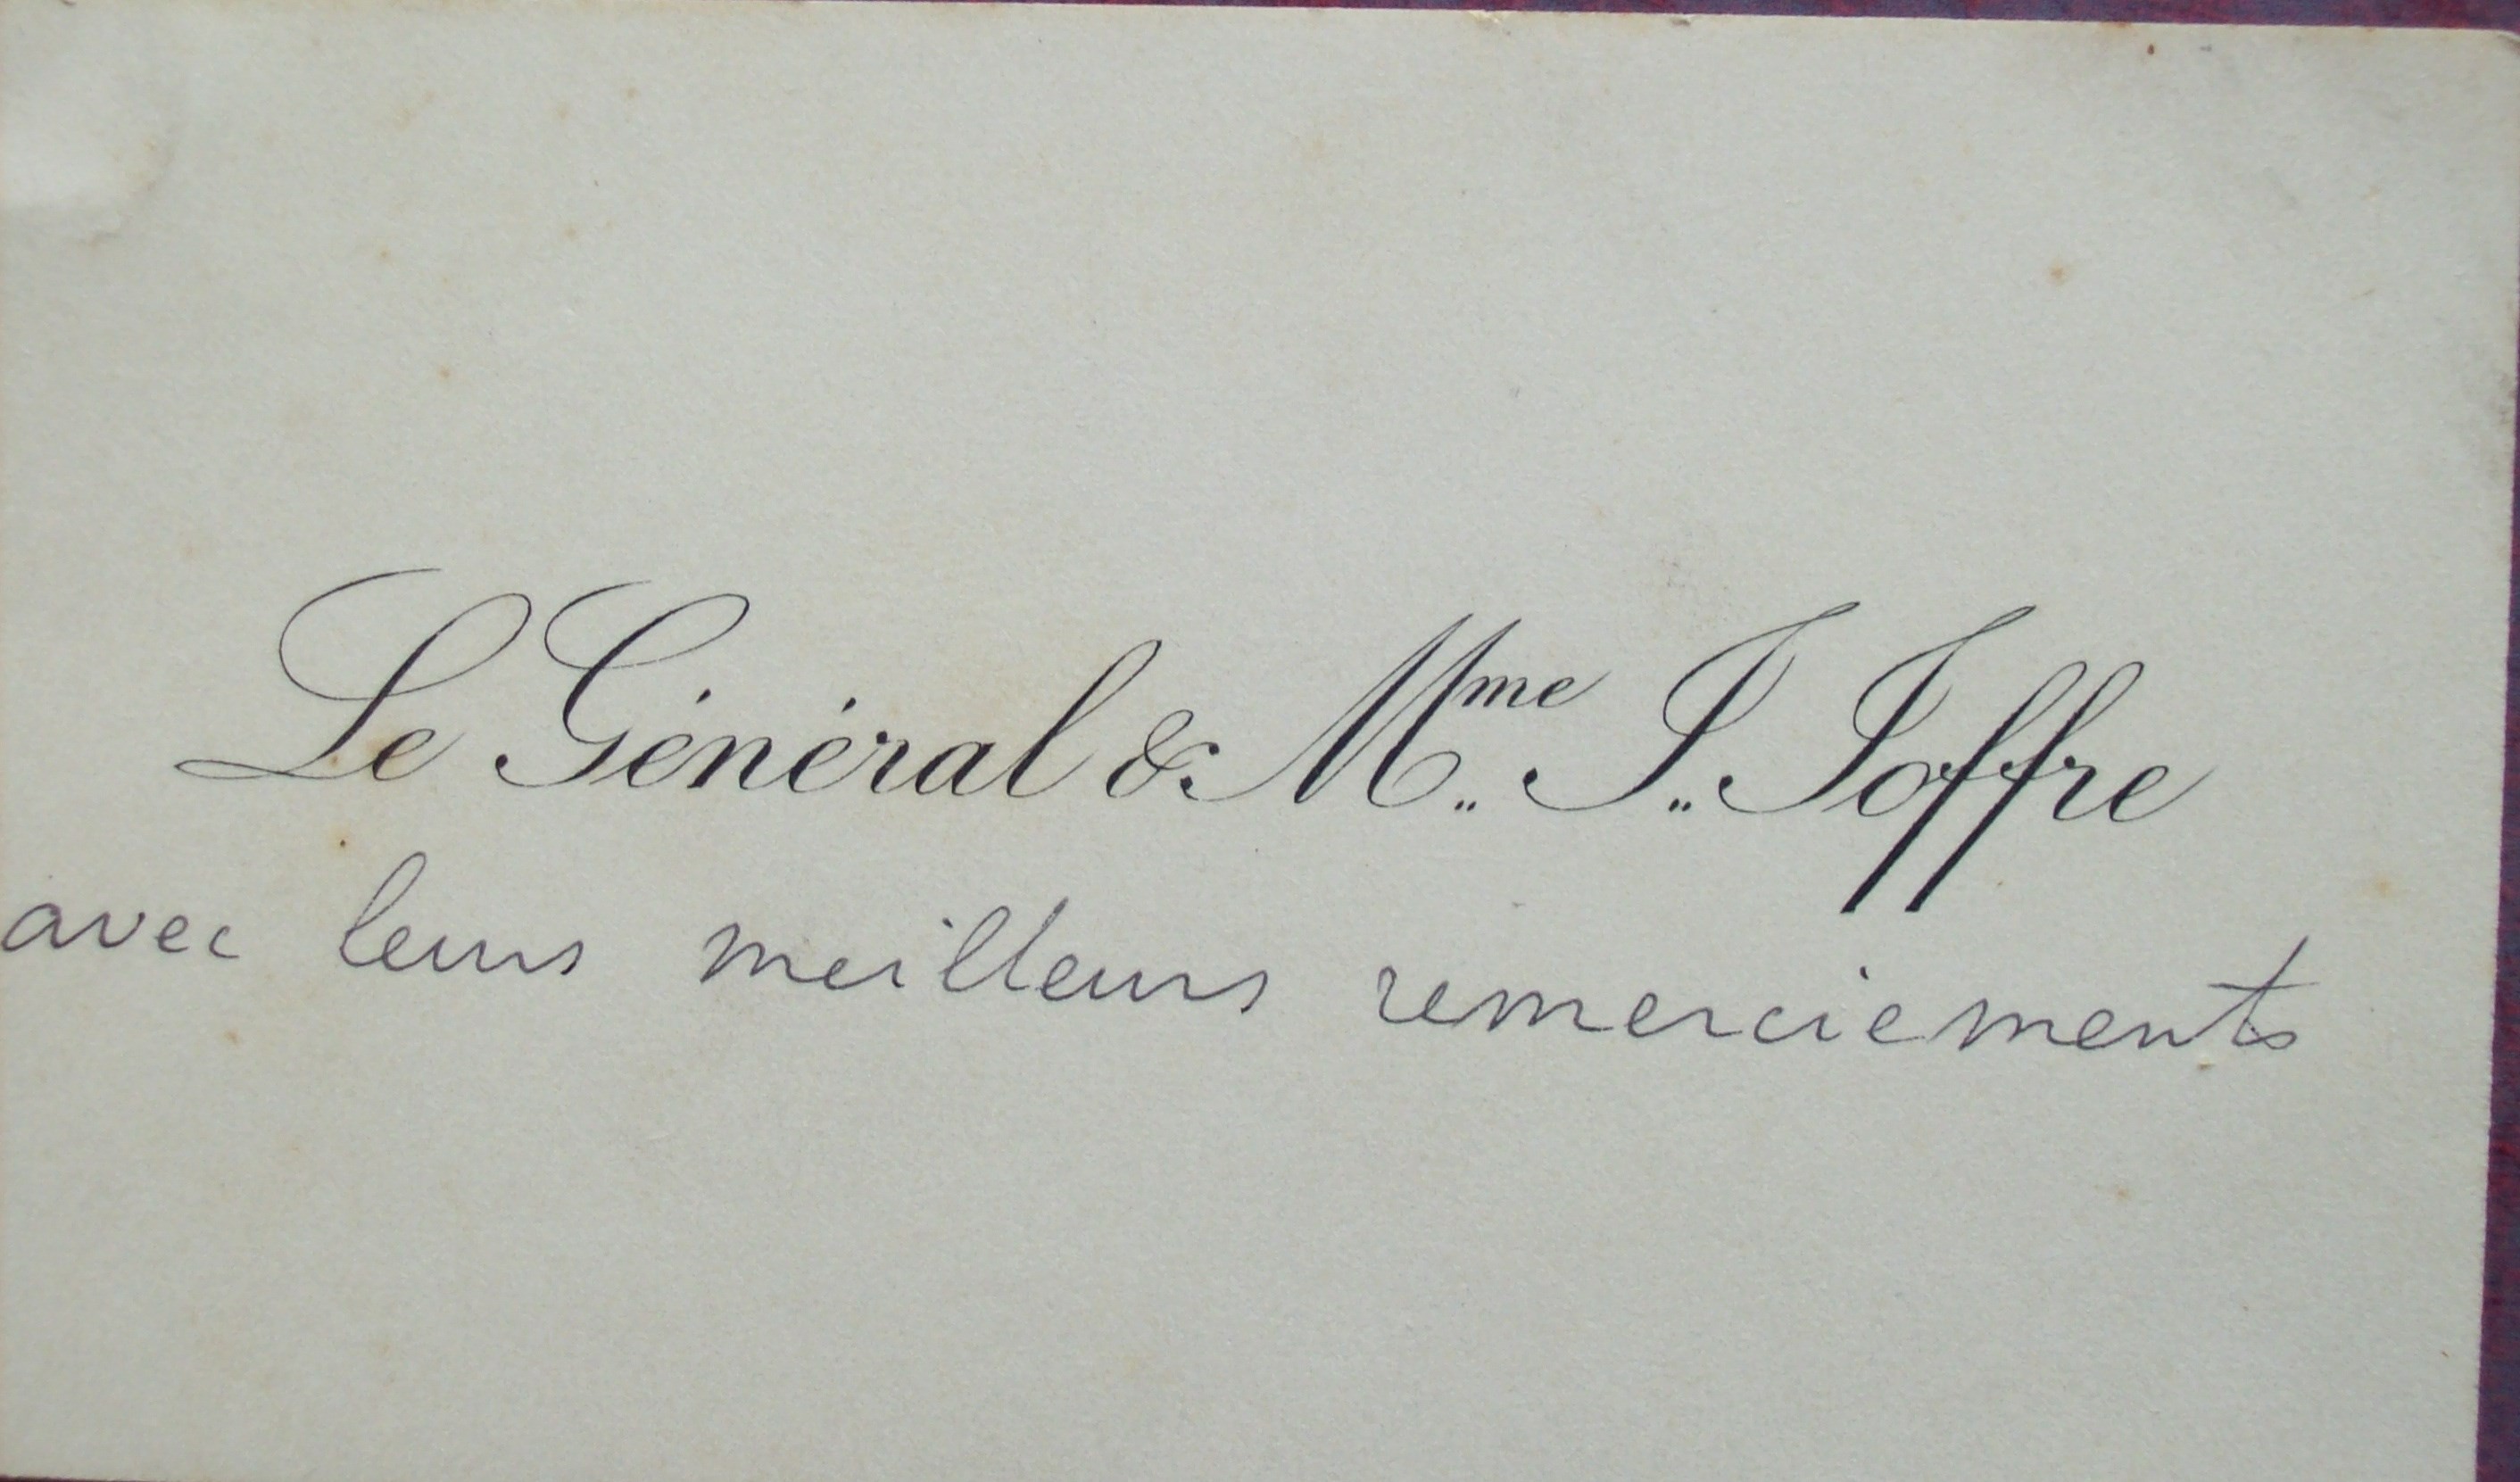 Le Général & Mme J. Joffre
avec leurs meilleurs remerciements